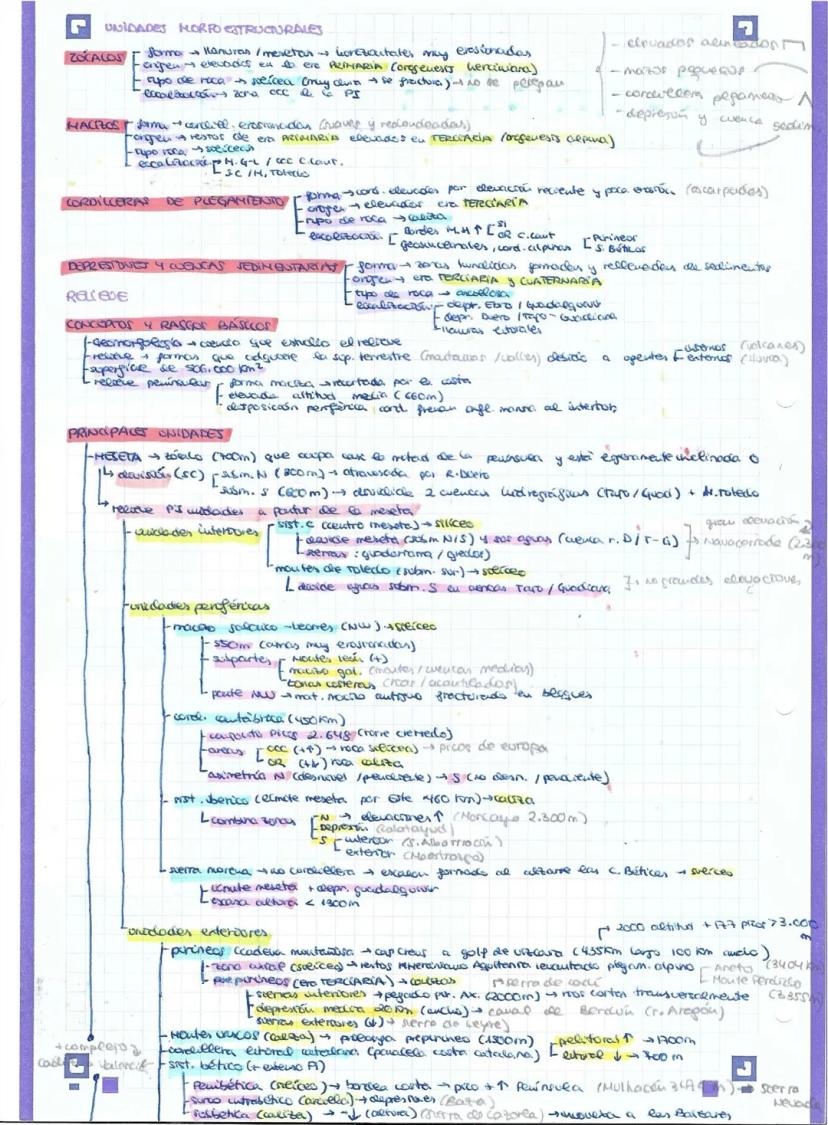 UNIDADES MORFOESTRUCTURALES
ZÓCALOS
forma → llanuras / mesetas → horizontales muy erosionadas
origen → elevados en la era PRIMARIA (orogénesis herciniana)
tipo de roca → silícea (muy dura → se fractura) → no se pliegan
localización → zona occ de la PI
- elevados alineados
- mazos pequeños
- cordillera
- depresión y cuenca sedim.
MACIZOS
forma → cordill. erosionadas (suaves y redondeadas)
origen → restos de era PRIMARIA elevados en TERCIARIA (orogénesis alpina)
tipo roca → silícea
localización M. G-L / occ C. Cant.
SC / M. Toledo
CORDILLERAS DE PLEGAMIENTO
forma → cord. elevadas por elevación reciente y poca erosión (escarpadas)
origen → elevadas era TERCIARIA
tipo de roca → caliza
localización Bordes M.H SI
OR C. Cant
geosinclinales, cord. alpinas Pirineos
S. Béticos
DEPRESIONES Y CUENCAS SEDIMENTARIAS
forma → zonas hundidas formadas y rellenadas de sedimentos
origen → era TERCIARIA y CUATERNARIA
tipo de roca → arcillosa
localización → depr. Ebro / Guadalquivir
depr. Duero / Tajo - Guadiana
llanuras litorales
RELIEVE
CONCEPTOS Y RASGOS BÁSICOS
geomorfología → ciencia que estudia el relieve
relieve → formas que adquiere la sup. terrestre (montañas / valles) debido a agentes internos (volcanes)
externos (lluvia)
superficie de 506.000 km²
relieve peninsular forma maciza → recortada por la costa
elevada altitud media (660m)
disposición periférica cord. frenan infl. marina al interior
PRINCIPALES UNIDADES
MESETA → zócalo (700m) que ocupa casi la mitad de la península y está ligeramente inclinada O
división (SC) subm. N (800m) → atravesada por R. Duero
subm. S (600m) → 2 cuencas hidrográficas (Tajo / Guad) + M. Toledo
relieve PI unidades a partir de la meseta
unidades interiores
sist. C (centro meseta) → silíceo
divide meseta (subm N/S) y sus aguas (cuenca r. D / T-G)
sierras: guadarrama / gredos
gran elevación
Navacerrada
montes de Toledo (subm. sur) → silíceo
divide aguas subm. S en cuencas Tajo / Guadiana
no grandes elevaciones
unidades periféricas
macizo galaico - leonés (NW) → silíceo
550m (cimas muy erosionadas)
subpartes Montes león (+)
macizo gal. (montes / cuencas medias)
zonas costeras (rías / acantilados)
parte NW → mat. macizo antiguo fracturado en bloques
cord. cantábrica (450 km)
conjunto Picos 2.648 (torre cerredo)
áreas OCC (+↑) → roca silícea → picos de europa
OR (+↓) roca caliza
asimetría N (desnivel / pendiente) → S (no desn. / pendiente)
sist. ibérico (límite meseta por Este 460 km) → caliza
combina zonas N → elevaciones ↑ (Moncayo 2.300m)
Depresión (Calatayud)
S interior (S. Albarracín)
exterior (Maestrazgo)
sierra morena → no cordillera → escalón formado al alzarse las C. Béticas → silíceo
límite meseta + depr. guadalquivir
escasa altura < 1300m
unidades exteriores
2000 altitud + 177 picos > 3.000 m
pirineos (cadena montañosa → cap creus a golf de vizcaya (435km largo 100 km ancho)
zona axial (silícea) → restos M. Hercínico Aquitania levantado plegam. alpino Aneto (3404m)
Monte Perdido (3.355m)
prepirineos (era TERCIARIA) → calizas
sierras interiores → pegado pir. Ax. (2000m) → ríos cortan transversalmente
depresión media 20 km (ancho) → canal de Berdún (r. Aragón)
sierras exteriores (↓) → sierra de Leyre
MONTES VASCOS (caliza) → prolonga prepirineo (1500m)
cordillera litoral catalana (paralela costa catalana) prelitoral ↑ → 1700m
litoral ↓ → 700 m
+ complejo
sist. bético (+ extenso PI)
Penibética (silíceo) → bordea costa → pico + ↑ Península (Mulhacén) → Sierra Nevada
surco intrabético (arcilla) → depresiones (Baza)
subbética (caliza) → - ↓ (altura) (Sierra de Cazorla) → a las Baleares